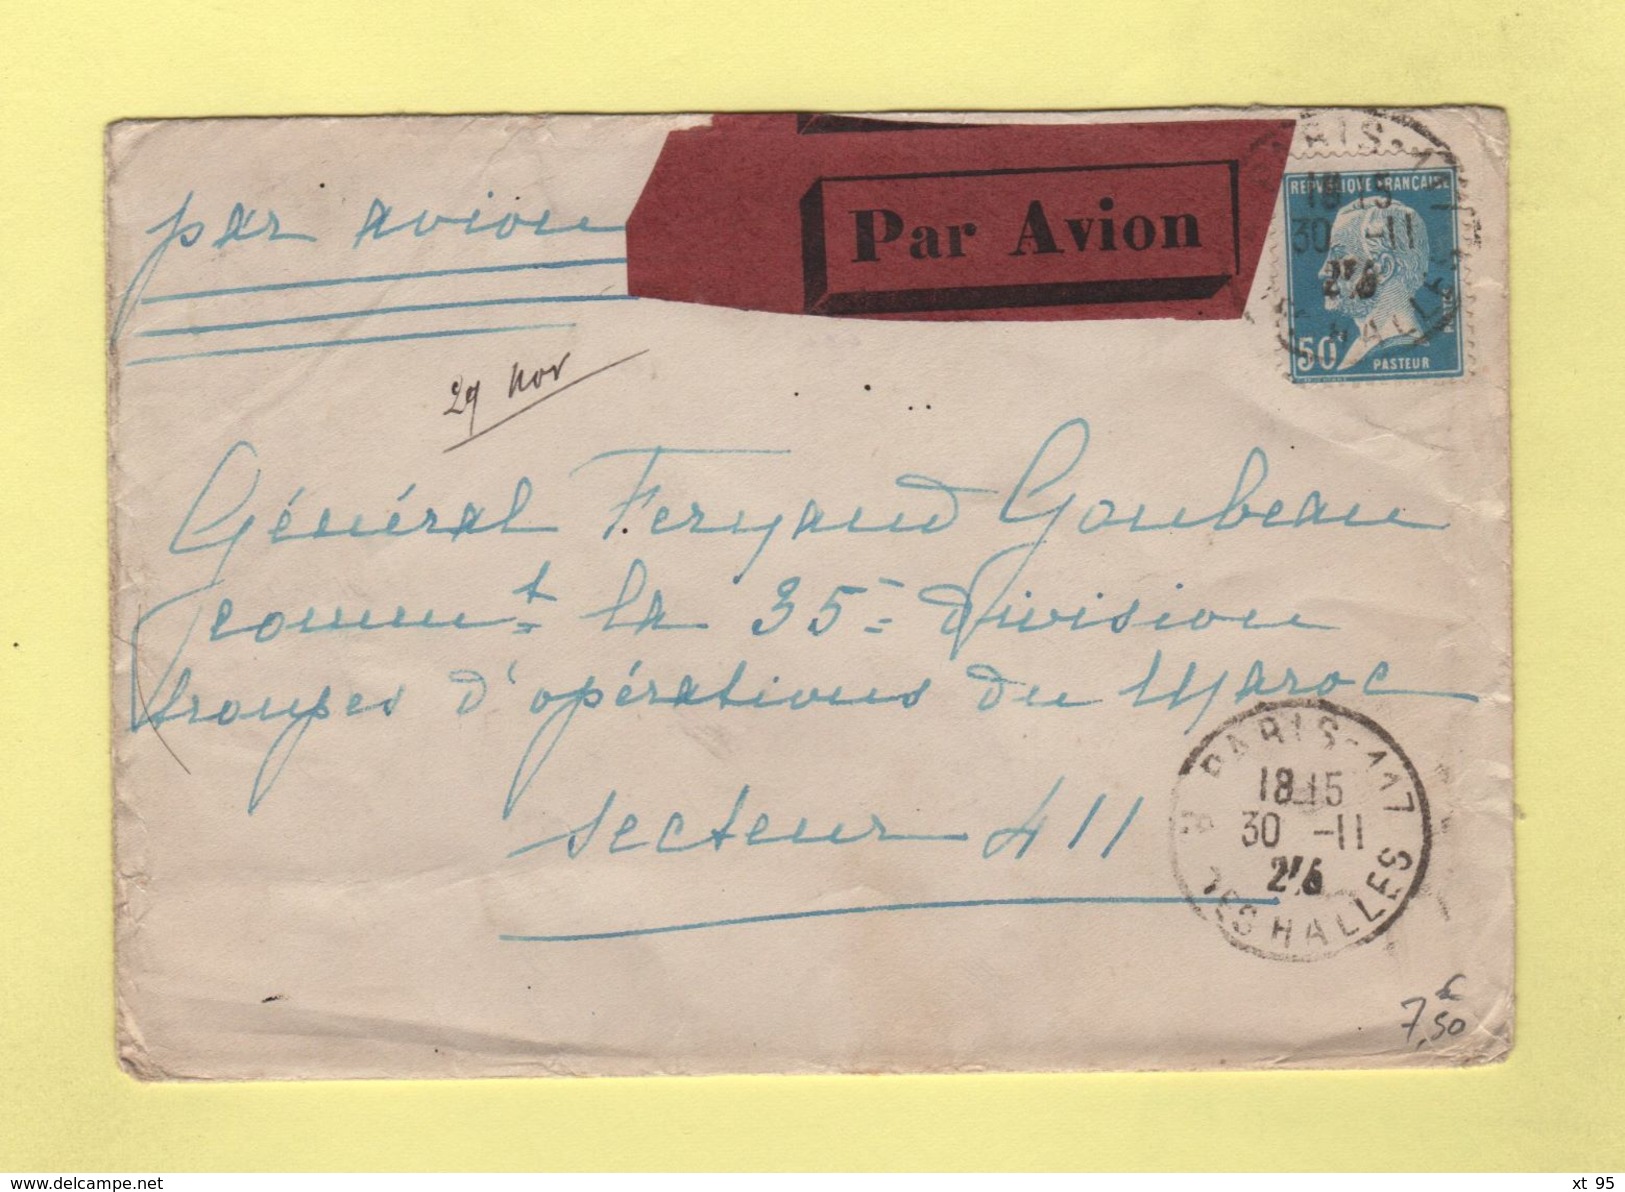 par avion
Par Avion
PARIS-11
18 15
30 -11
HALLES
REPUBLIQUE FRANCAISE
50
PASTEUR
29 nov
Général Fernand Goubeau
commt la 35e division
troupes d'opérations du Maroc
secteur 411
PARIS-117
18 15
30 -11
LES HALLES
7,50 €
www.delcampe.net
xt 95